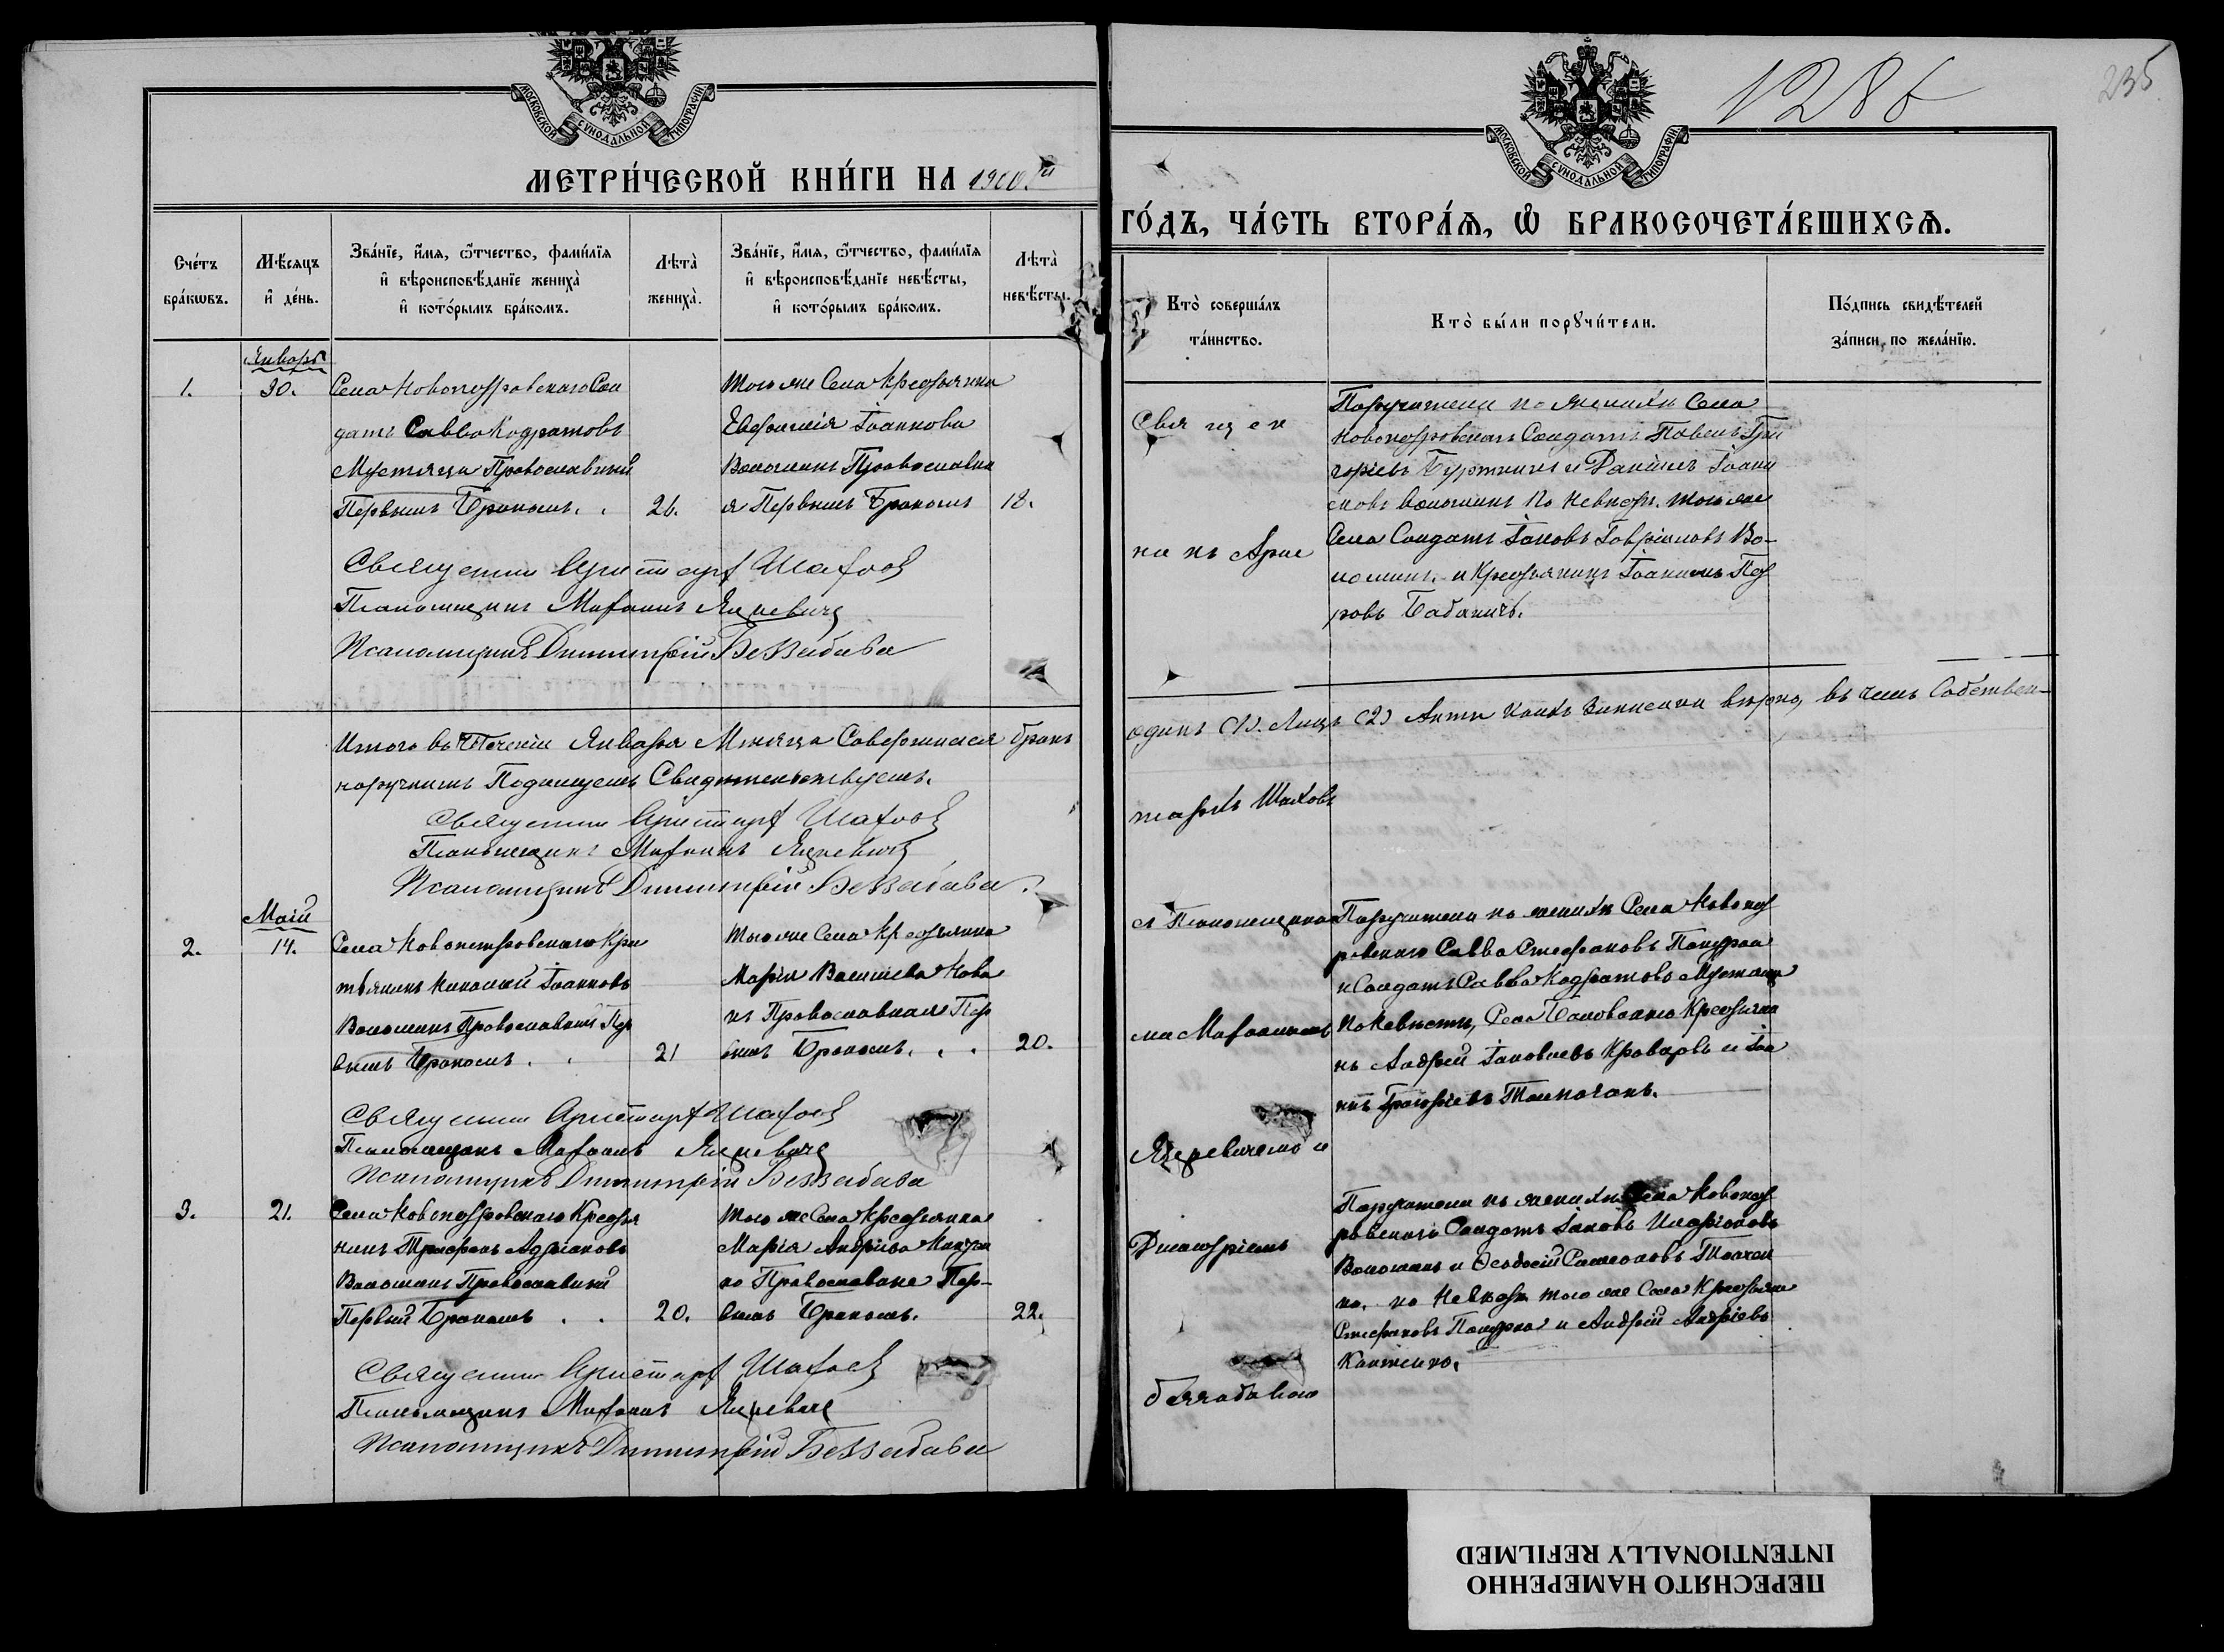 МОСКОВСКОЙ СѴНОДАЛЬНОЙ ТИПОГРАФІИ
МЕТРИ́ЧЕСКОЙ КНИ́ГИ НА 1900й
Сче́тъ бра́кωвъ.
Мѣ́сяцъ и҆ де́нь.
Зва́нїе, и҆́мѧ, ѻ҆́тчество, фами́лїѧ
и҆ вѣроисповѣ́данїе жениха̀
и҆ кото́рымъ бра́комъ.
Лѣта̀ жениха̀.
Зва́нїе, и҆́мѧ, ѻ҆́тчество, фами́лїѧ
и҆ вѣроисповѣ́данїе невѣ́сты,
и҆ кото́рымъ бра́комъ.
Лѣта̀ невѣ́сты.
Январь
1.
30.
Села Новопетровскаго Сол
датъ Савва Кодратовъ
Мустяца Православный
Первымъ Бракомъ.
26.
Того же Села Крестьянка
Евфимія Іоаннова
Воломинъ Православна
я Первымъ Бракомъ
18.
Священник Аристархъ Шаховъ
Псаломщикъ Мафоилъ Яцкевичъ
Псаломщикъ Димитрій Беззабава
Итого въ теченіи Января Мѣсяца Совершился бракъ
норучнымъ Подписуемъ Свидѣтельствуемъ.
Священник Аристархъ Шаховъ
Псаломщикъ Мафоилъ Яцкевичъ
Псаломщикъ Димитрій Беззабава.
Маій
2.
14.
Села Новопетровскаго Кре
тьянинъ Николай Іоанновъ
Воломинъ Православный Пер
вымъ Бракомъ.
21
Того же Села Крестьянка
Марія Василева Нова
къ Православная Пер
вымъ Бракомъ.
20.
Священник Аристархъ Шаховъ
Псаломщикъ Мафоилъ Яцкевичъ
Псаломщикъ Димитрій Беззабава
3.
21.
Села Новопетровскаго Кресть
нинъ Трифонъ Адріановъ
Воломинъ Православный
Первый Бракомъ
20.
Того же Села Крестьянка
Марія Андрѣева
ко Православная Пер-
вымъ Бракомъ.
22.
Священник Аристархъ Шаховъ
Псаломщикъ Мафоилъ Яцкевичъ
Псаломщикъ Димитрій Беззабава
1286
235
МОСКОВСКОЙ СѴНОДАЛЬНОЙ ТИПОГРАФІИ
ГО́ДЪ, ЧА́СТЬ ВТОРА́Ѧ, Ѡ҆ БРАКОСОЧЕТА́ВШИХСѦ.
Кто̀ соверша́лъ
та́инство.
Кто̀ бы́ли порꙋчи́тели.
По́дпись свидѣ́телей
за́писи, по жела́нїю.
Священ
никъ Арис
Поручители по женихѣ Села
Новопетровскаго Солдатъ Павелъ Гри
горіевъ и Даніилъ Іоанн
новъ Воломинъ По невѣстѣ того же
Села Солдатъ Іаковъ Гавріиловъ Во-
ломинъ. и Крестьянинъ Іоаннъ Пет
ровъ Бабаничъ.
одинъ (1). Лицъ (2) Акты Коихъ Записаны вѣрно, въ чемъ Собствен-
тархъ Шаховъ
съ Псаломщика
ми Мафоиломъ
Яцкевичемъ и
Димитріемъ
беззабавою
Поручители по женихѣ Села Новопет
ровскаго Савва Стефановъ Попурка
и Солдатъ Савва Кодратовъ Мустяца
По Невѣсты, Села Крестьяни
нъ Андрей Іаковлевъ Кроваръ и Іоа
ннъ Григоріевъ
Поручители по женихѣ Села Новопет
ровскаго Солдатъ Іаковъ Иларіоновъ
Воломинъ и Ѳеодосій Симеоновъ
ко. по Невѣстѣ того же Села Крестьяне
Стефановъ Попурка и Андрей Андріевъ
ПЕРЕСНЯТО НАМЕРЕННО
INTENTIONALLY REFILMED